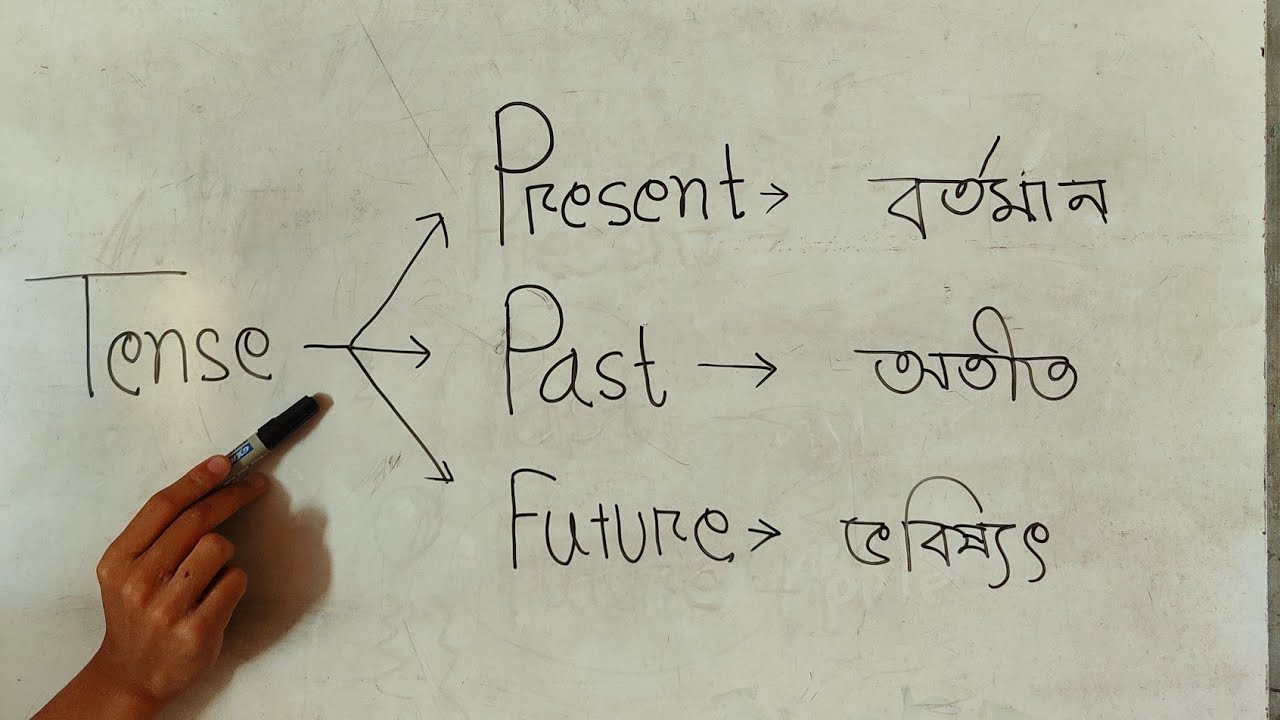 Tense
Present → বর্তমান
Past → অতীত
Future → ভবিষ্যৎ